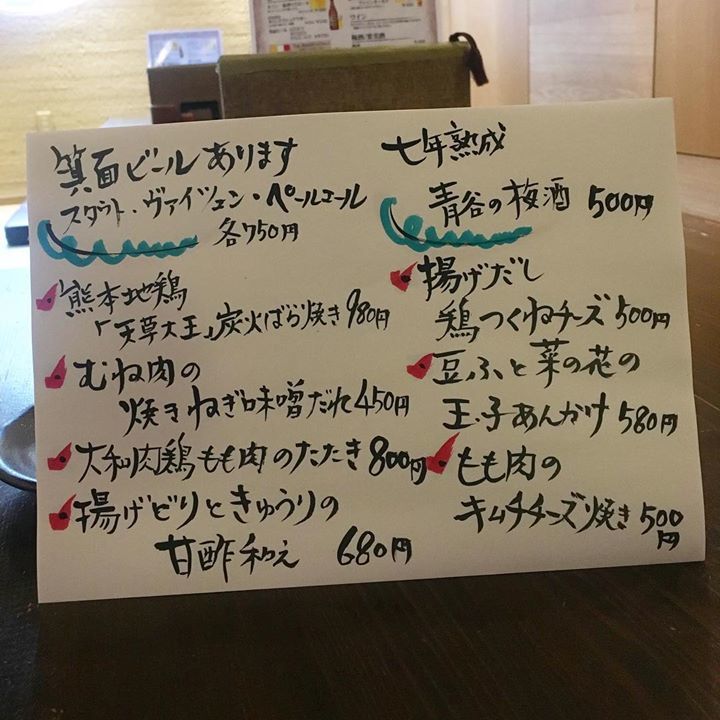 箕面ビールあります
スタウト・ヴァイツェン・ペールエール
各750円
熊本地鶏
「天草大王」炭火ばら焼き980円
むね肉の
焼きねぎ味噌だれ450円
大和肉鶏もも肉のたたき800円
揚げどりときゅうりの
甘酢和え 680円
七年熟成
青谷の梅酒 500円
揚げだし
鶏つくねチーズ500円
豆ふと菜の花の
玉子あんかけ580円
もも肉の
キムチチーズ焼き500
円
ワイン